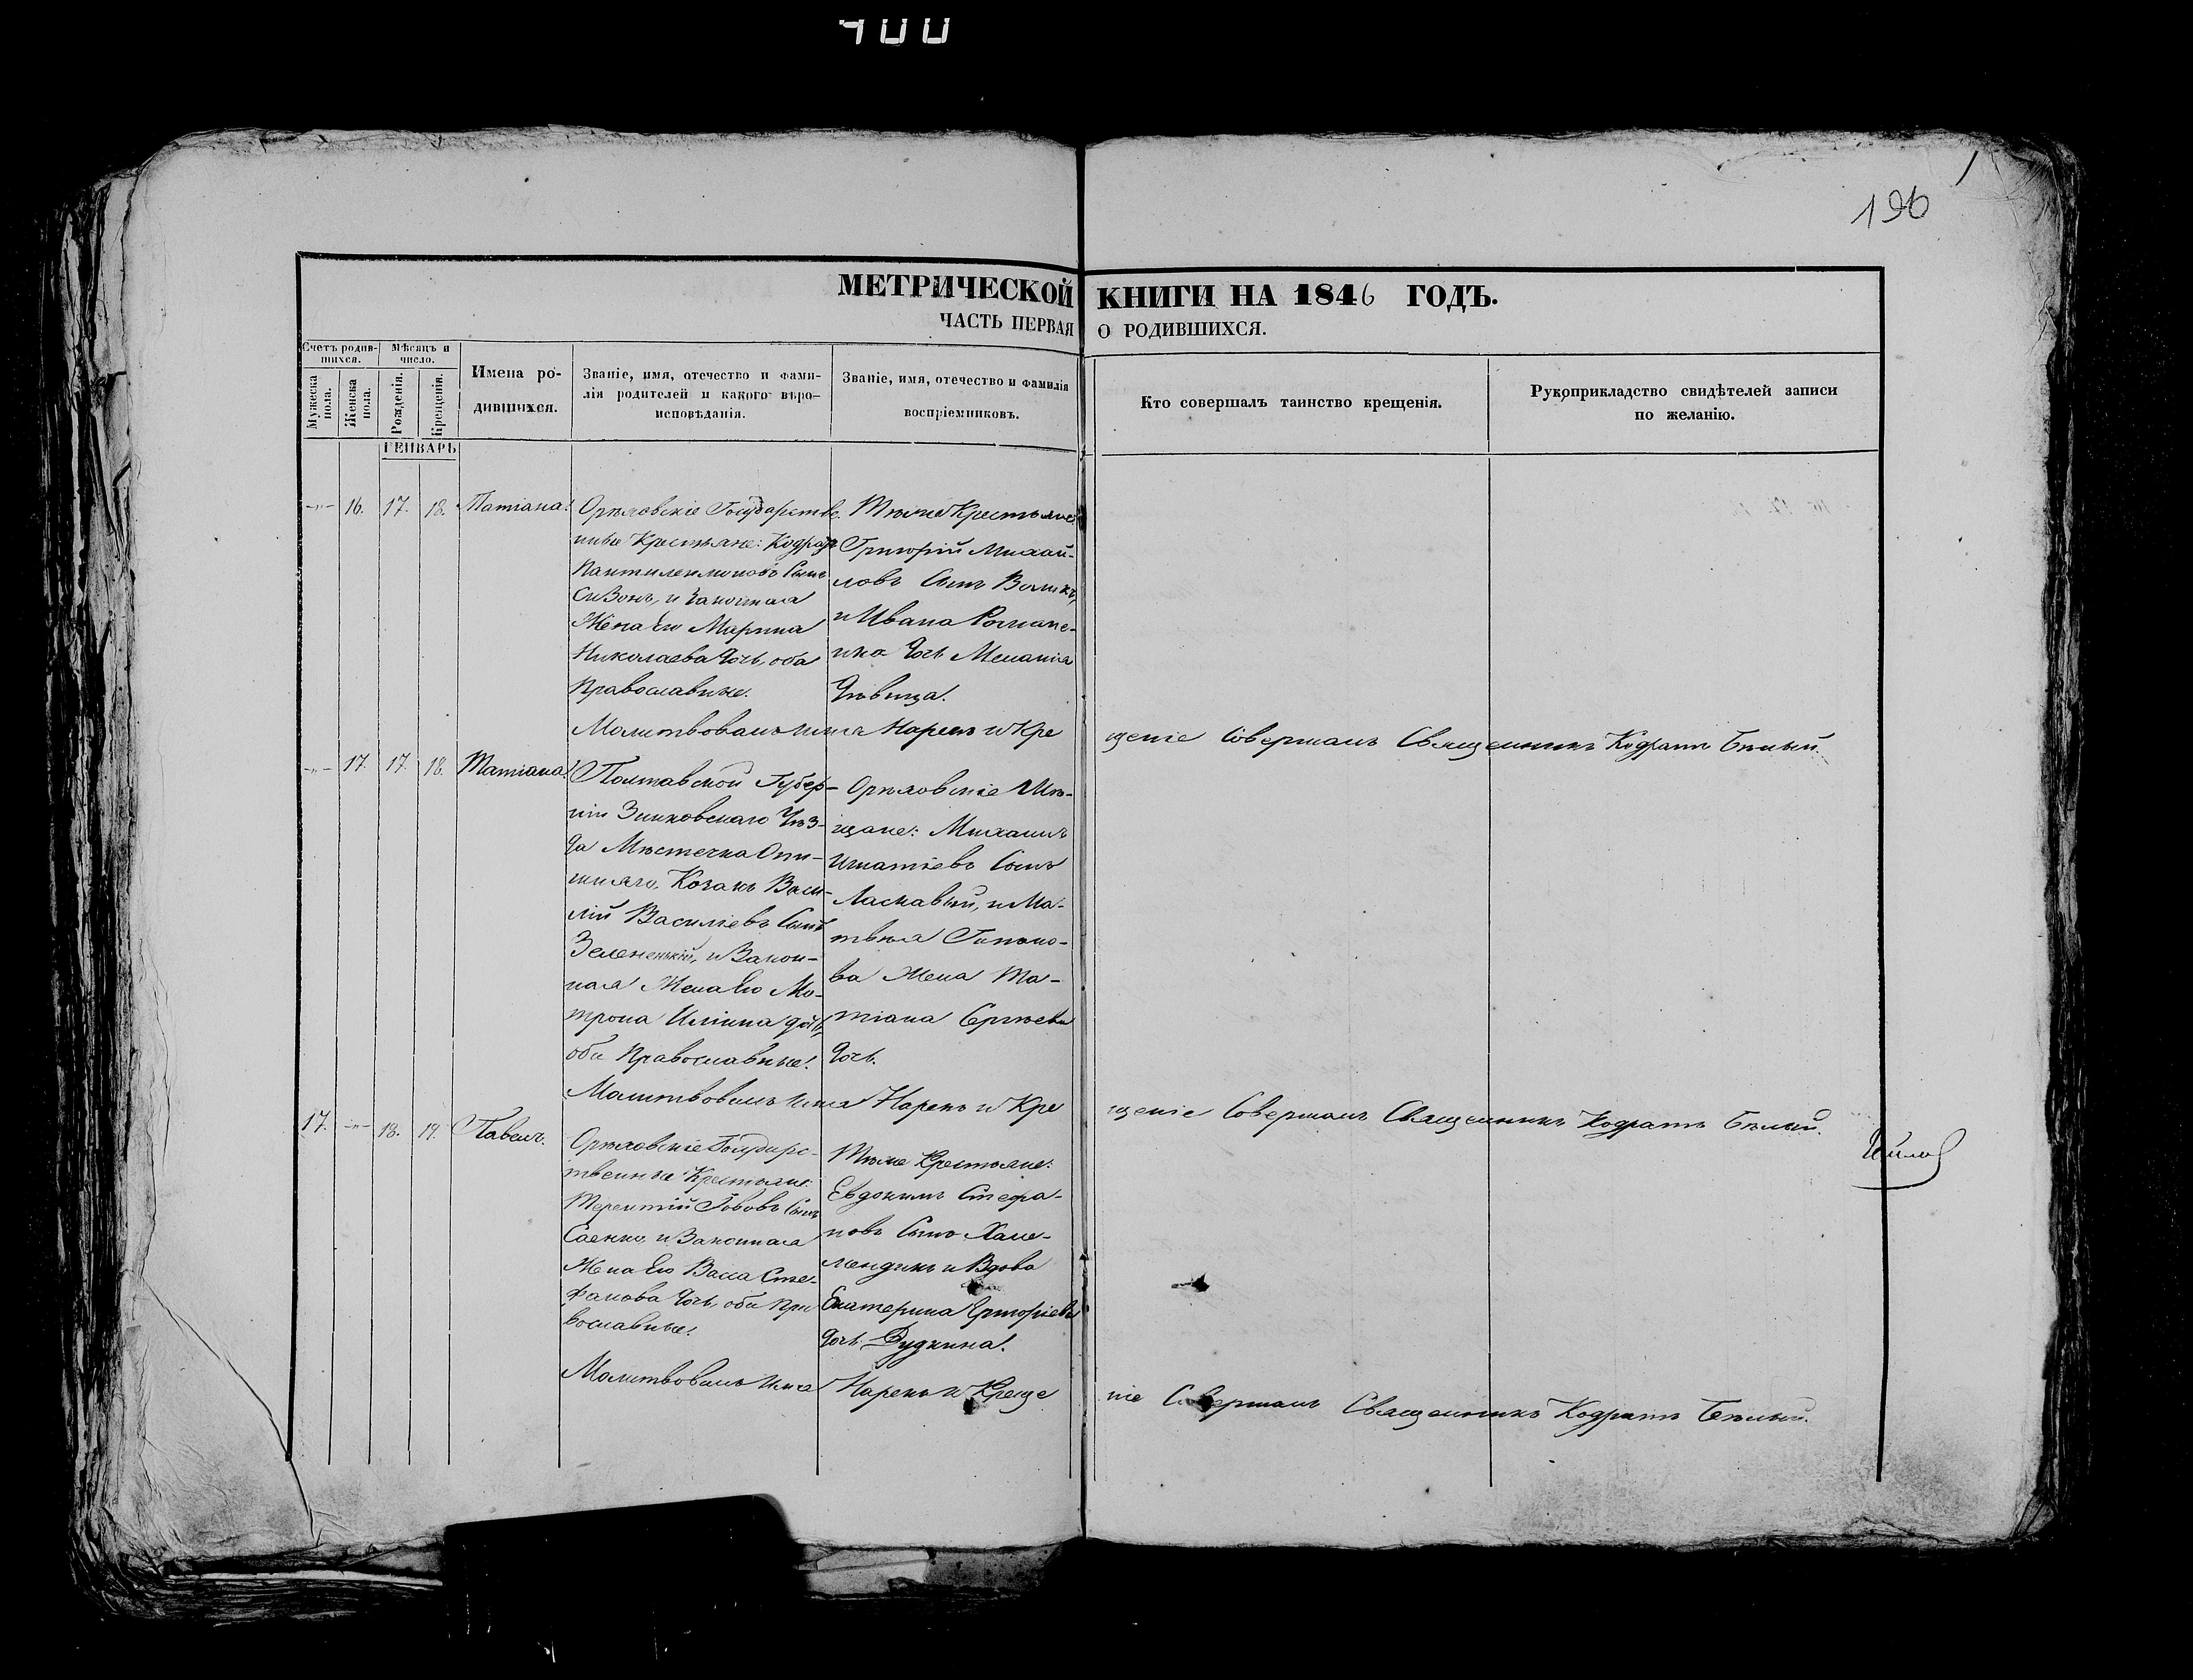 400
196
МЕТРИЧЕСКОЙ КНИГИ НА 1846 ГОДЪ.
ЧАСТЬ ПЕРВАЯ О РОДИВШИХСЯ.
Счетъ родившихся.
Мужеска пола.
Женска пола.
Мѣсяцъ и число.
Рожденія.
Крещенія.
Имена родившихся.
Званіе, имя, отечество и фамилія родителей и какого вѣроисповѣданія.
Званіе, имя, отечество и фамилія воспріемниковъ.
Кто совершалъ таинство крещенія.
Рукоприкладство свидѣтелей записи по желанію.
ГЕНВАРЬ
16. 17. 18. Татіана.
Орѣховскіе Государстве-
нные Крестьяне: Кодратъ
Пантилеимоновъ Сынъ
Сизонъ, и Законная
Жена Его Марина
Николаева дочь, оба
Православные.
Тѣже Крестьяне
Григорій Михай-
ловъ Сынъ Воликъ,
и Ивана Романе-
нка дочь Меланія
Дѣвица.
Молитвовалъ имя Нарекъ и Крещеніе Совершалъ Священникъ Кодратъ Бѣлый.
17. 17. 18. Татіана.
Полтавской Губер-
ніи Зинковскаго Уѣз-
да Мѣстечка Опи-
шняго, Козакъ Васи-
лій Василіевъ Сынъ
Зелененькій, и Закон-
ная Жена Его Мо-
трона Иліина дочь,
оба Православные.
Орѣховскіе Мѣ-
щане: Михаилъ
Игнатіевъ Сынъ
Ласкавый, и Ма-
твѣя
ва Жена Та-
тіана Сергѣева
дочь.
Молитвовалъ имя Нарекъ и Крещеніе Совершалъ Священникъ Кодратъ Бѣлый.
17. 18. 19. Павелъ.
Орѣховскіе Государс-
твенные Крестьяне:
Терентій Іововъ Сынъ
Саенко, и Законная
Жена Его Васса Сте-
фанова дочь, оба Пра
вославные.
Тѣже Крестьяне:
Евдокимъ Стефа-
новъ Сынъ
и Вдова
Екатерина Григоріева
дочь Дудкина.
Молитвовалъ имя Нарекъ и Крещеніе Совершалъ Священникъ Кодратъ Бѣлый.